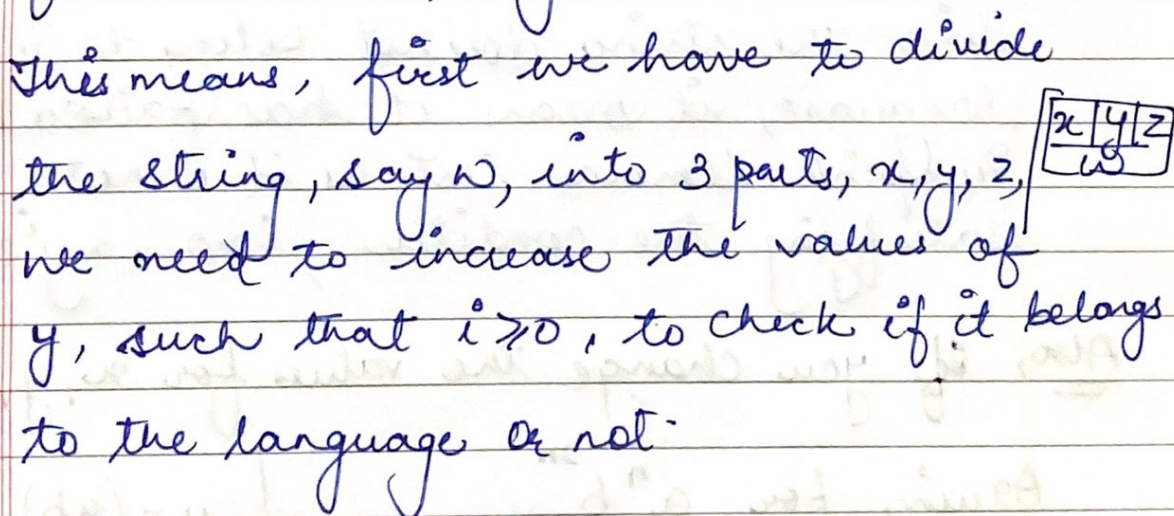 This means, first we have to divide
the string, say w, into 3 parts, x, y, z,
x y z
w
we need to increase the values of
y, such that i ≥ 0, to check if it belongs
to the language or not.